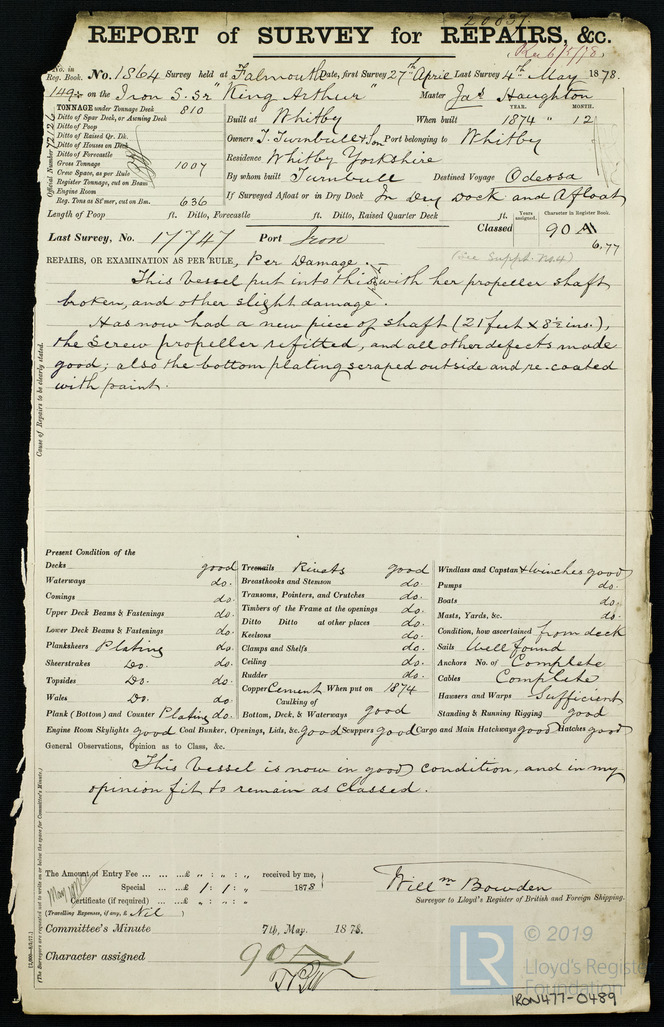 REPORT of SURVEY for REPAIRS, &c.
No. in Reg. Book. No. 1864 Survey held at Falmouth Date, first Survey 27th April Last Survey 4th May 1878.
on the Iron S. Sr "King Arthur" Master Jas Haughton
TONNAGE under Tonnage Deck 810
Ditto of Spar Deck, or Awning Deck
Ditto of Poop
Ditto of Raised Qr. Dk.
Ditto of Houses on Deck
Ditto of Forecastle
Gross Tonnage 1007
Crew Space, as per Rule
Register Tonnage, cut on Beam
Engine Room
Reg. Tons as St'mer, cut on Bm. 636
Official Number 72126
YEAR. MONTH.
Built at Whitby When built 1874 " 12
Owners T. Turnbull & Son Port belonging to Whitby
Residence Whitby Yorkshire
By whom built Turnbull Destined Voyage Odessa
If Surveyed Afloat or in Dry Dock In Dry Dock and Afloat
Length of Poop ft. Ditto, Forecastle ft. Ditto, Raised Quarter Deck ft.
Years assigned. Character in Register Book.
Classed 90 A1
6,77
Last Survey, No. 17747 Port Iron
(see Suppt. No 4)
REPAIRS, OR EXAMINATION AS PER RULE, Per Damage.—
This Vessel put into this with her propeller shaft
broken, and other slight damage.
Has now had a new piece of shaft (21 feet x 8½ ins.),
the screw propeller refitted, and all other defects made
good; also the bottom plating scraped outside and re-coated
with paint.
Cause of Repairs to be clearly stated.
Present Condition of the
Decks good
Waterways do.
Comings do.
Upper Deck Beams & Fastenings do.
Lower Deck Beams & Fastenings do.
Planksheers Plating do.
Sheerstrakes Do. do.
Topsides Do. do.
Wales Do. do.
Plank (Bottom) and Counter Plating do.
Treenails Rivets good
Breasthooks and Stemson do.
Transoms, Pointers, and Crutches do.
Timbers of the Frame at the openings do.
Ditto Ditto at other places do.
Keelsons do.
Clamps and Shelfs do.
Ceiling do.
Rudder do.
Copper Cement When put on 1874
Caulking of
Bottom, Deck, & Waterways good
Windlass and Capstan & Winches good
Pumps do.
Boats do.
Masts, Yards, &c. do.
Condition, how ascertained from deck
Sails Well found
Anchors No. of Complete
Cables Complete
Hawsers and Warps Sufficient
Standing & Running Rigging good
Engine Room Skylights good Coal Bunker, Openings, Lids, &c. good Scuppers good Cargo and Main Hatchways good Hatches good
General Observations, Opinion as to Class, &c.
This Vessel is now in good condition, and in my
opinion fit to remain as classed.
The Amount of Entry Fee ... ... ...£ " : " : " received by me,
Special ... ...£ 1 : 1 : " 1878
Certificate (if required) ... ...£ " : " : "
(Travelling Expenses, if any, £ Nil )
Willm Bowden
Surveyor to Lloyd's Register of British and Foreign Shipping.
Committee's Minute 7th May. 1878.
Character assigned 90 A1
(The Surveyors are requested not to write on or below the space for Committee's Minute.)
LR © 2019
Lloyd's Register
Foundation
IRON477-0489